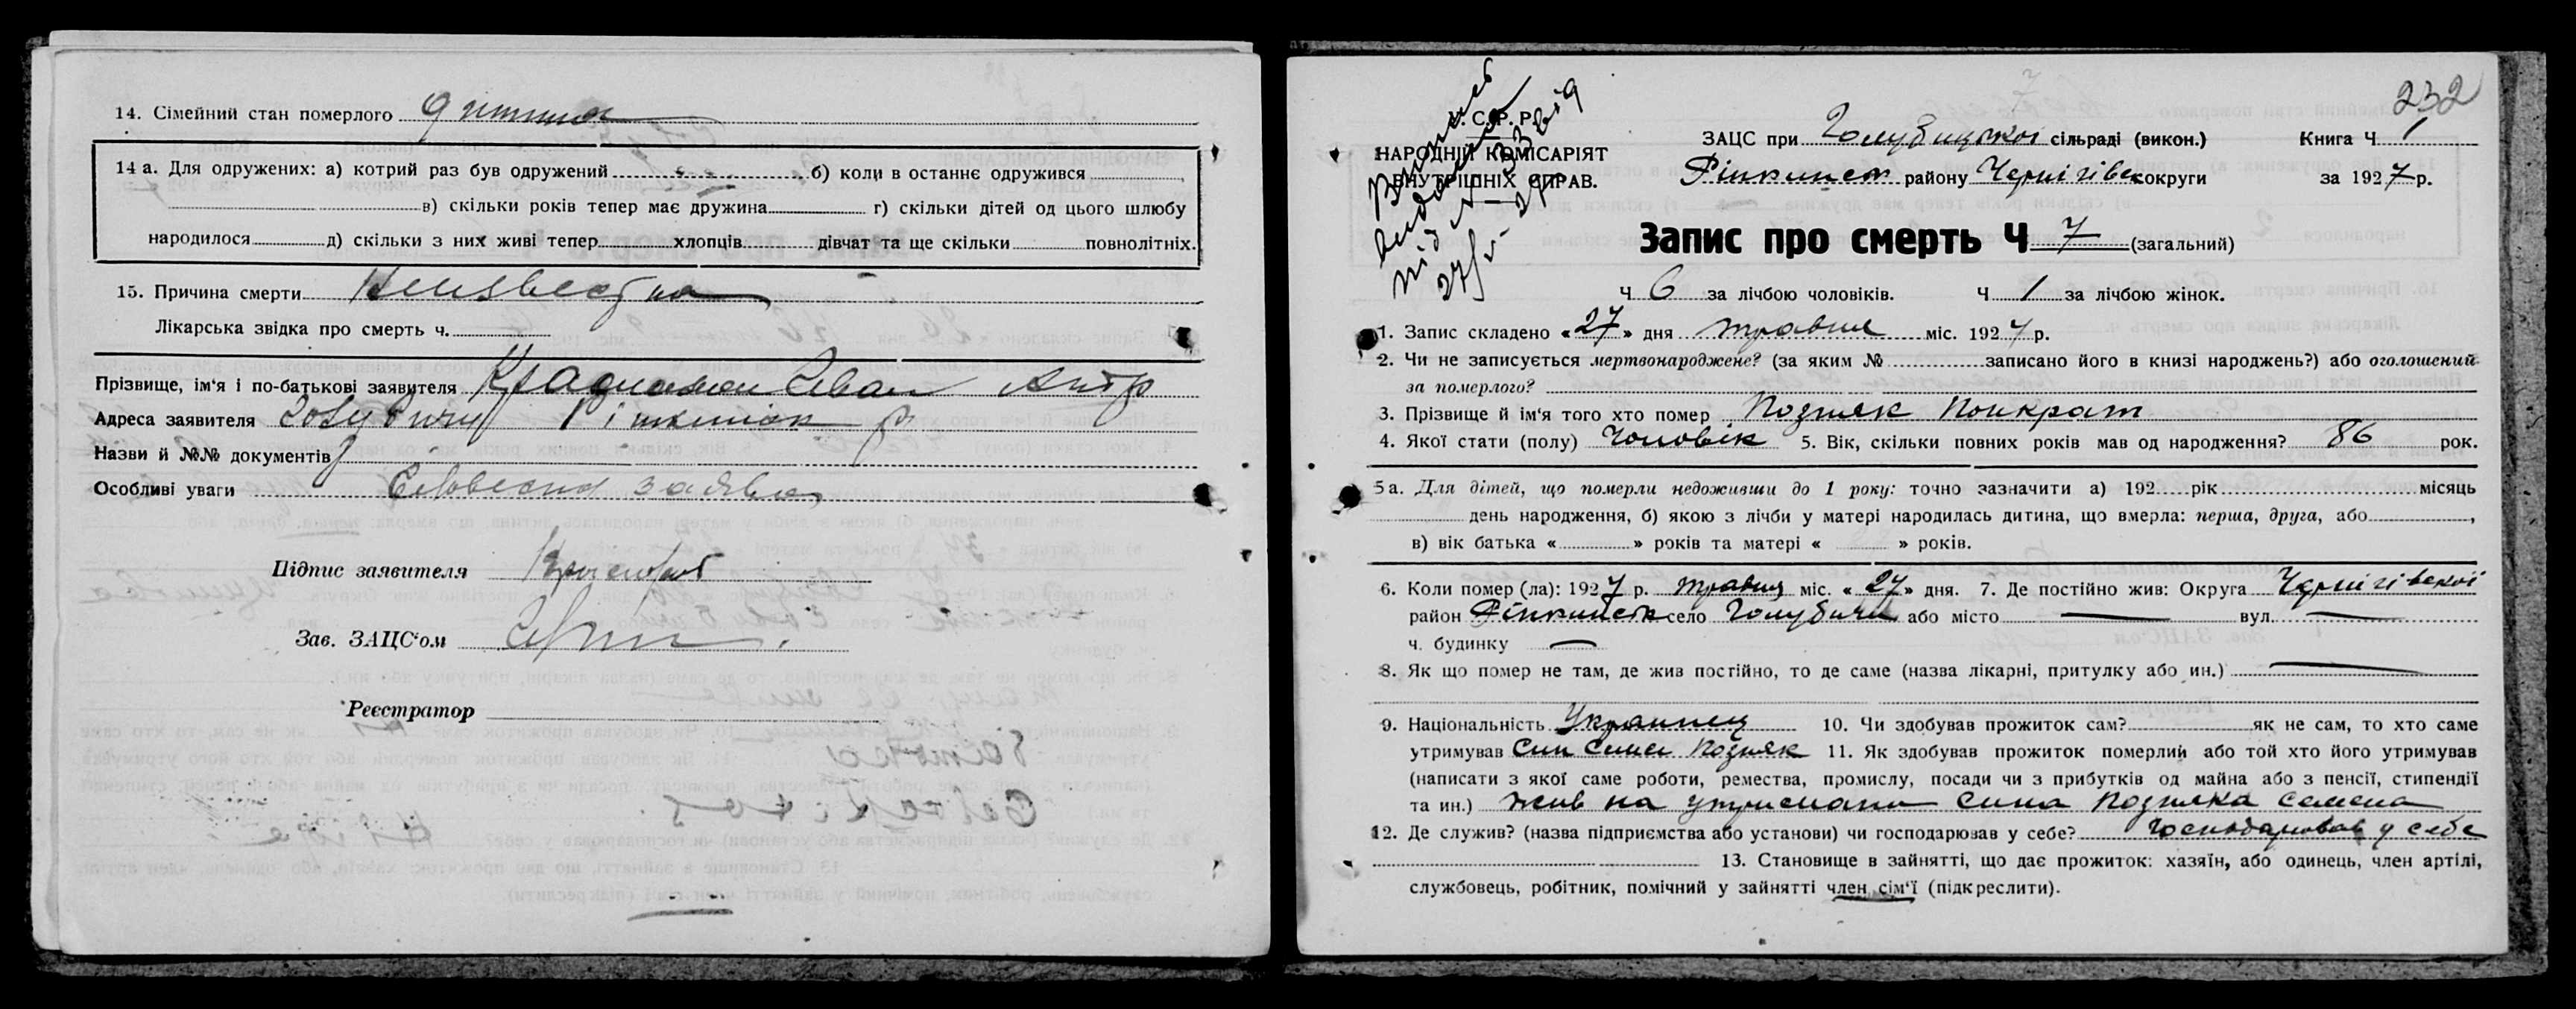 14. Сімейний стан померлого дитина
14 а. Для одружених: а) котрий раз був одружений б) коли в останнє одружився
в) скільки років тепер має дружина г) скільки дітей од цього шлюбу
народилося д) скільки з них живі тепер хлопців дівчат та ще скільки повнолітніх.
15. Причина смерти Неизвестна
Лікарська звідка про смерть ч.
Прізвище, ім'я і по-батькові заявителя Иван
Адреса заявителя Голубичи Ріпкинськ р
Назви й №№ документів
Особливі уваги Словесна заява
Підпис заявителя
Зав. ЗАЦС'ом
Реєстратор
232
У. С. Р. Р.
НАРОДНІЙ КОМІСАРІЯТ
ВНУТРІШНІХ СПРАВ.
ЗАЦС при Голубицької сільраді (викон.) Книга Ч 1
Ріпкинськ района району Чернігівск округи за 1927 р.
Запис про смерть Ч 7 (загальний)
Ч 6 за лічбою чоловіків. Ч 1 за лічбою жінок.
1. Запис складено «27» дня травня міс. 1927 р.
2. Чи не записується мертвонароджене? (за яким № записано його в книзі народжень?) або оголошений
за померлого?
3. Прізвище й ім'я того хто помер Позняк Понкрат
4. Якої стати (полу) Чоловік 5. Вік, скільки повних років мав од народження? 86 рок.
5 а. Для дітей, що померли недоживши до 1 року: точно зазначити а) 192 рік місяць
день народження, б) якою з лічби у матері народилась дитина, що вмерла: перша, друга, або ,
в) вік батька « » років та матері « » років.
6. Коли помер (ла): 1927 р. травня міс. «27» дня. 7. Де постійно жив: Округа Чернігівскої
район Ріпкинськ село Голубичи або місто вул.
ч. будинку
8. Як що помер не там, де жив постійно, то де саме (назва лікарні, притулку або ин.)
9. Національність Украинец 10. Чи здобував прожиток сам? як не сам, то хто саме
утримував Син Семен Позняк 11. Як здобував прожиток померлий або той хто його утримував
(написати з якої саме роботи, ремества, промислу, посади чи з прибутків од майна або з пенсії, стипендії
та ин.) Жив на утримани сина Позняка Семена
12. Де служив? (назва підприємства або установи) чи господарював у себе? Господарював у себе
13. Становище в зайнятті, що дає прожиток: хазяїн, або одинець, член артілі,
службовець, робітник, помічний у зайнятті член сім'ї (підкреслити).